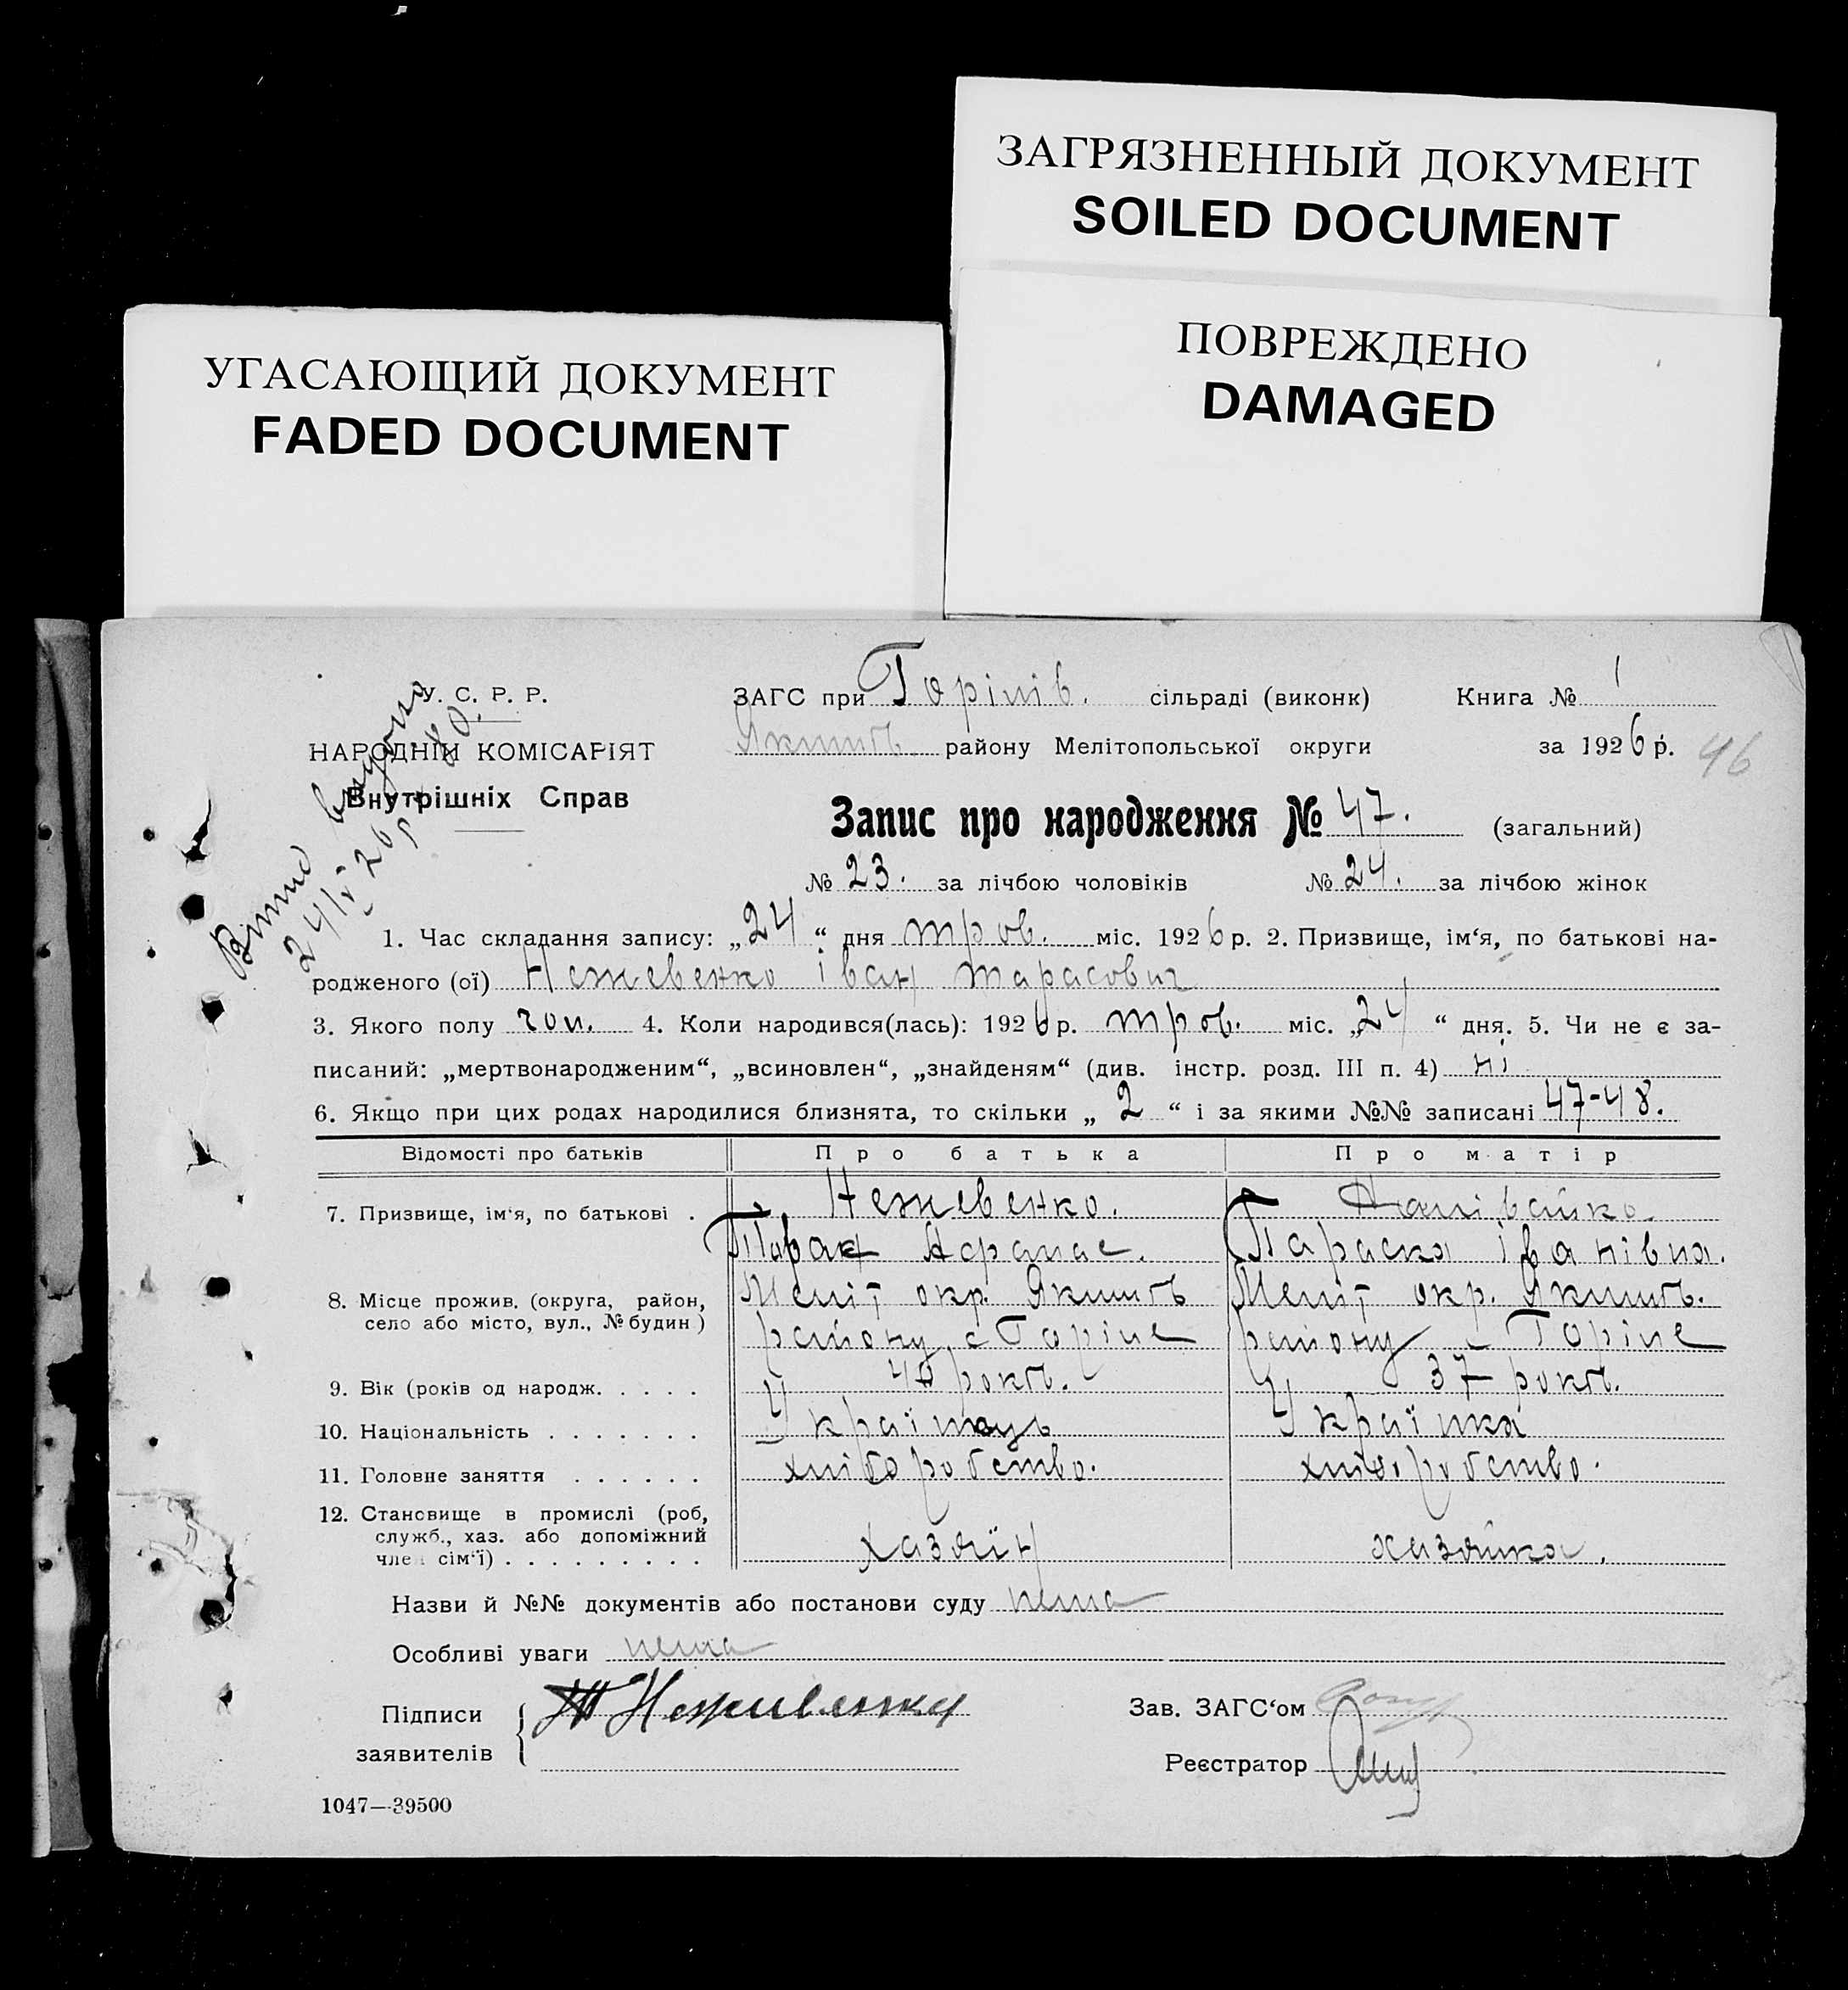 ЗАГРЯЗНЕННЫЙ ДОКУМЕНТ
SOILED DOCUMENT
ПОВРЕЖДЕНО
DAMAGED
УГАСАЮЩИЙ ДОКУМЕНТ
FADED DOCUMENT
У. С. Р. Р.
НАРОДНІЙ КОМІСАРІЯТ
Внутрішніх Справ
ЗАГС при Горілів. сільраді (виконк) Книга № 1
району Мелітопольської округи за 1926 р. 46
Запис про народження № 47. (загальний)
№ 23. за лічбою чоловіків № 24. за лічбою жінок
1. Час складання запису: „24“ дня трав. міс. 1926 р. 2. Призвище, ім‘я, по батькові на-
родженого (ої) Нежевенко Іван Тарасович
3. Якого полу чол. 4. Коли народився(лась): 1926 р. трав. міс. „24“ дня. 5. Чи не є за-
писаний: „мертвонародженим“, „всиновлен“, „знайденям“ (див. інстр. розд. III п. 4) ні
6. Якщо при цих родах народилися близнята, то скільки „2“ і за якими №№ записані 47-48.
Відомості про батьків Про батька Про матір
7. Призвище, ім‘я, по батькові . Нежевенко. Налівайко.
Тарас Параска Іванівна.
8. Місце прожив. (округа, район, село або місто, вул., № будин) Меліт окр. Меліт окр.
району с Горіле району с Горіле
9. Вік (років од народж. . . . . 40 років. 37 років.
10. Національність . . . . . . . Українець Українка
11. Головне заняття . . . . . . хліборобство. хліборобство.
12. Становище в промислі (роб, служб., хаз. або допоміжний член сім‘ї) . . . . . . . . . Хазяїн хазяйка.
Назви й №№ документів або постанови суду нема
Особливі уваги нема
Підписи заявителів Т Неживенко
Зав. ЗАГС‘ом
Реєстратор
1047—39500